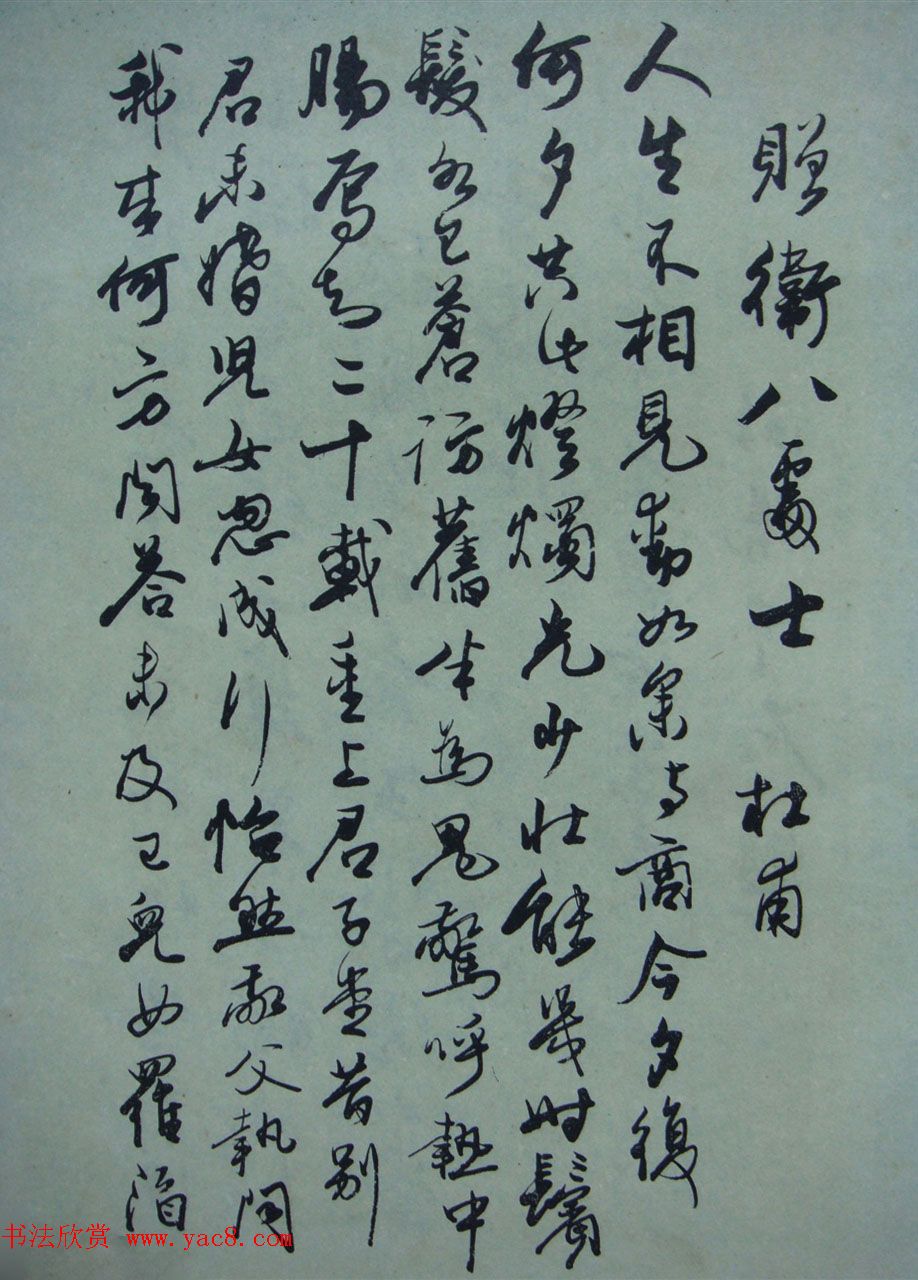 贈衛八處士 杜甫
人生不相見動如參与商今夕復
何夕共此燈燭光少壯能幾時鬢
髮各已蒼訪舊半為鬼驚呼熱中
腸焉知二十載重上君子堂昔别
君未婚兒女忽成行怡然敬父執問
我来何方問答未及已兒女羅酒
书法欣赏 www.yac8.com